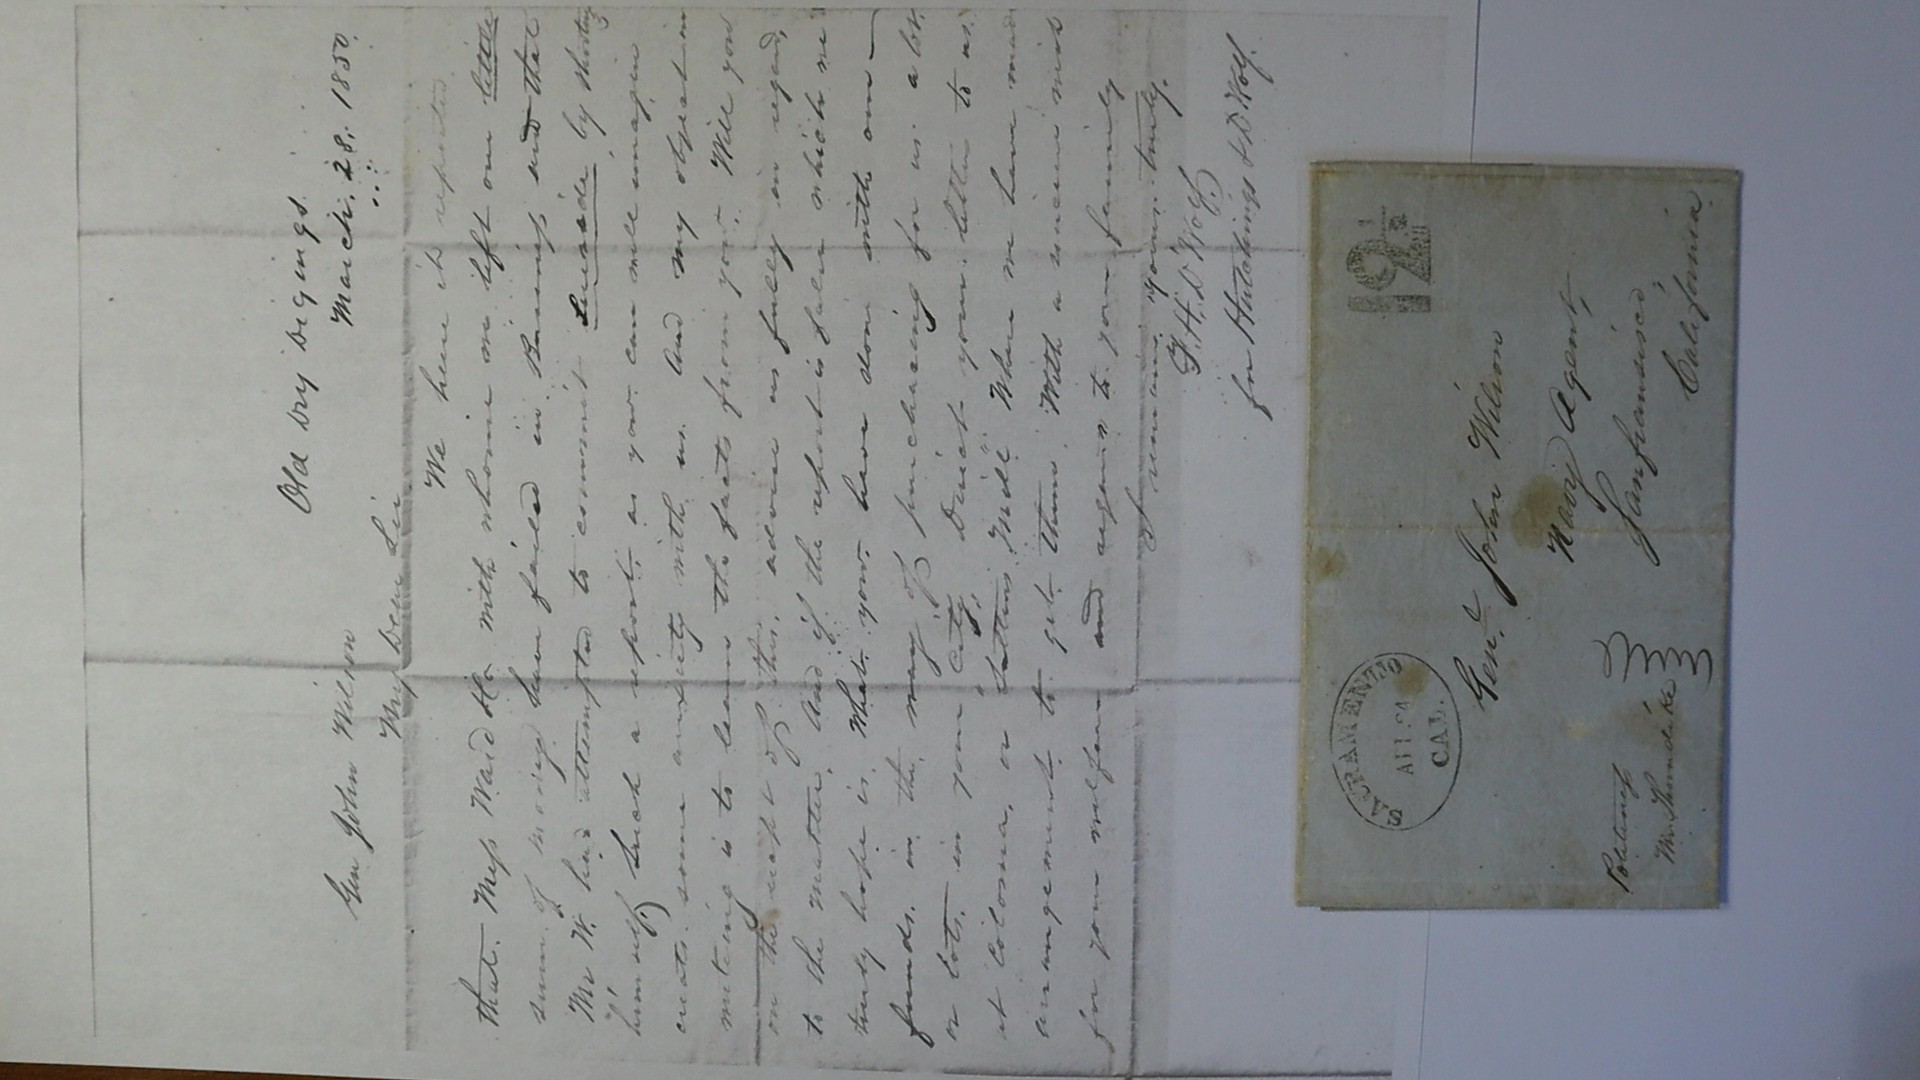 Old Dry Digings.
March. 28. 1850.
Gen John Wilson
My Dear Sir
We hear it reported
that. Mess Ward & Co. with whome we left our little
sum of money have failed in Business and that
Mr W. has attempted to commit Suicide by shooting
himself) Such a report, as you can well imagin
creats some anxiety with us. And my object in
writing is to learn the facts from you. Will you
on the recept of this. advise us fully in regard,
to the matter, And if the report is false which we
truly hope is. What you have done with our
funds. in the way of purchasing for us a lot.
or Lots. in your City. Direct your letter to us.
at Coloma, or Sutters Mill Where we have made
arangement to get them With a sincere wish
for your welfare and again to your family
I remain yours. truly.
F. H. D Wolf
for Hutchings & D Wolf.
SACRAMENTO
CAL.
12½
Gen.l John Wilson
Navy Agent,
Sanfrancisco
California
Politeness
Mr. Thorndike